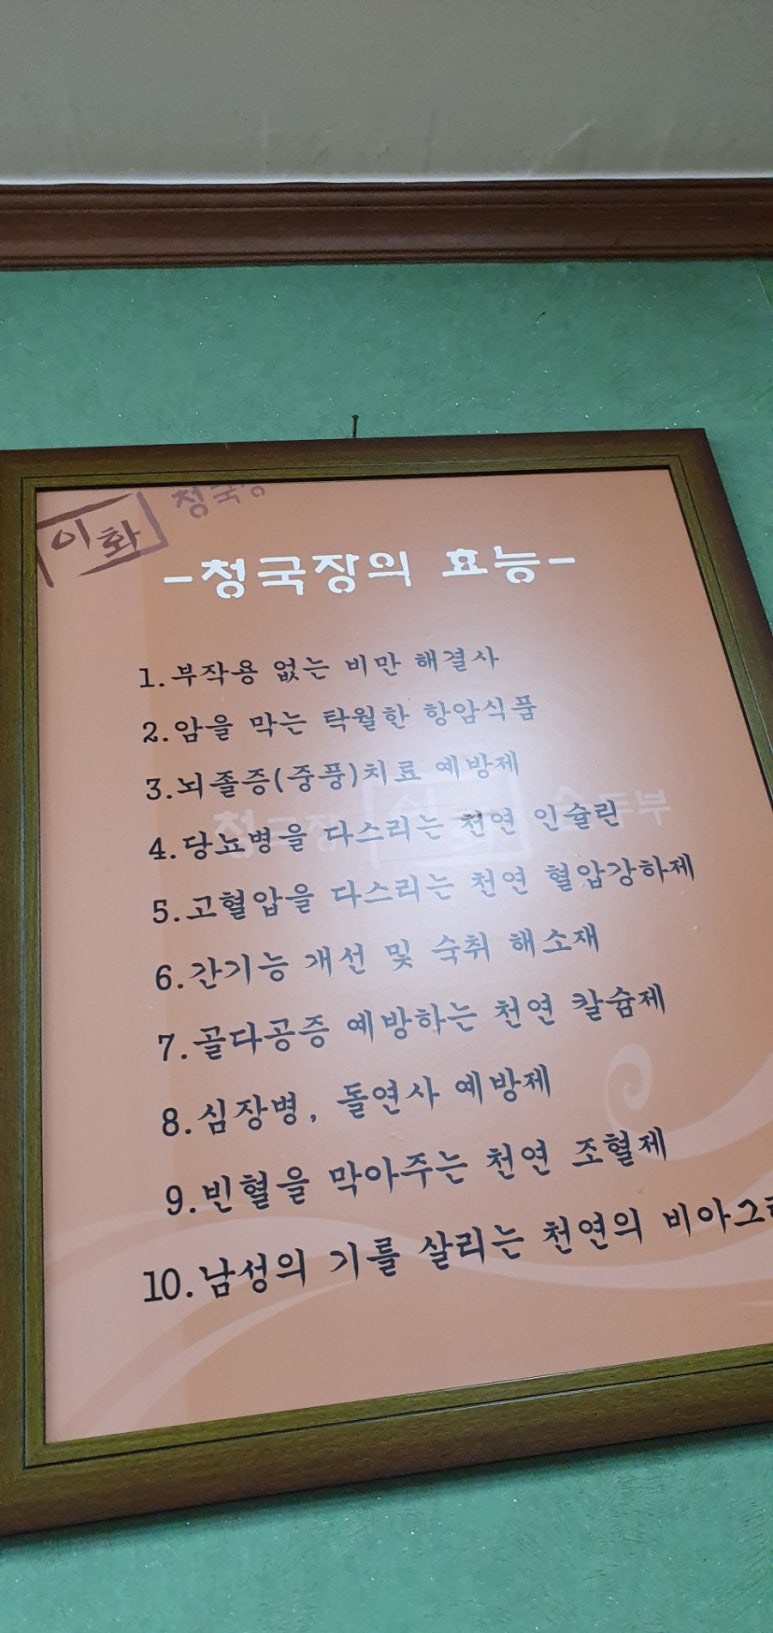 이화 청국장
-청국장의 효능-
1.부작용 없는 비만 해결사
2.암을 막는 탁월한 항암식품
3.뇌졸증(중풍)치료 예방제
4.당뇨병을 다스리는 천연 인슐린
5.고혈압을 다스리는 천연 혈압강하제
6.간기능 개선 및 숙취 해소재
7.골다공증 예방하는 천연 칼슘제
8.심장병, 돌연사 예방제
9.빈혈을 막아주는 천연 조혈제
10.남성의 기를 살리는 천연의 비아그